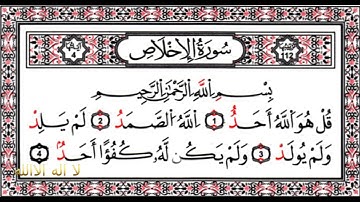 سُورَةُ الْإِخْلَاصِ
4
112
بِسْمِ اللَّهِ الرَّحْمَٰنِ الرَّحِيمِ
قُلْ هُوَ اللَّهُ أَحَدٌ 1 اللَّهُ الصَّمَدُ 2 لَمْ يَلِدْ
وَلَمْ يُولَدْ 3 وَلَمْ يَكُن لَّهُ كُفُوًا أَحَدٌ 4
لا اله الاالله